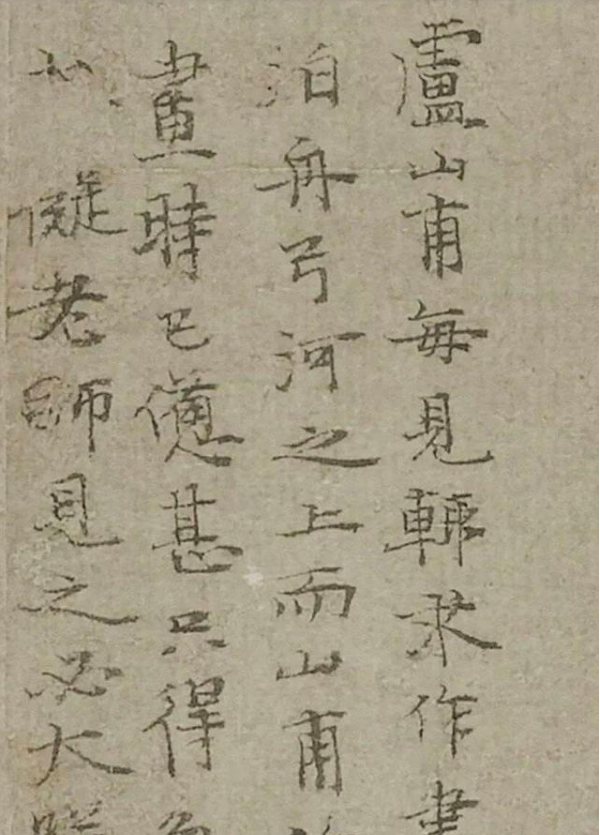 盧山甫每見輒求作畫
泊舟弓河之上而山甫
畫時已憊甚只得
癡老師見之必大